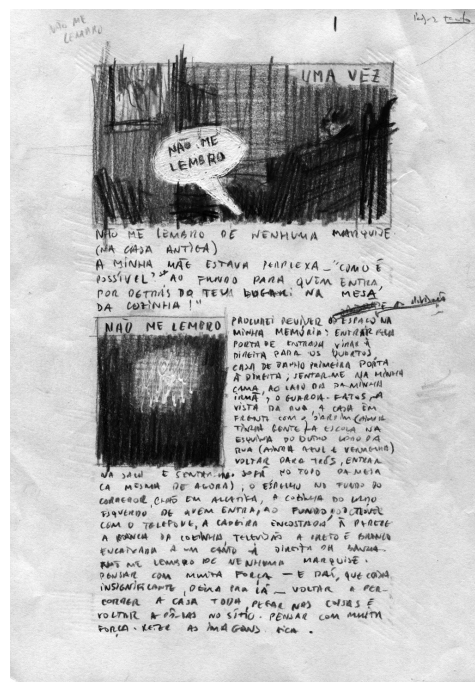 NÃO ME
LEMBRO
UMA VEZ
NÃO ME
LEMBRO
NÃO ME LEMBRO DE NENHUMA MARQUISE
(NA CASA ANTIGA)
A MINHA MÃE ESTAVA PERPLEXA _ "COMO É
POSSÍVEL?" AO FUNDO PARA QUEM ENTRA,
POR DETRÁS DO TEU LUGAR NA MESA
DA COZINHA!"
NÃO ME LEMBRO
PROCUREI REVIVER O ESPAÇO NA
MINHA MEMÓRIA: ENTRAR PELA
PORTA DE ENTRADA VIRAR À
DIREITA PARA OS QUARTOS
CASA DE BANHO PRIMEIRA PORTA
À DIREITA, SENTAR-ME NA MINHA
CAMA, AO LADO DA DA MINHA
IRMÃ, O GUARDA-FATOS, A
VISTA DA RUA, A CASA EM
FRENTE COM O JARDIM
TINHA GENTE, A ESCOLA NA
ESQUINA DO OUTRO LADO DA
RUA (MINHA AZUL E VERMELHA)
VOLTAR PARA TRÁS, ENTRAR
NA SALA E SENTAR SOFÁ NO TOPO DA MESA
(A MESMA DE AGORA), O ESPELHO NO FUNDO DO
CORREDOR, CHÃO EM ALCATIFA, A COZINHA DO LADO
ESQUERDO DE QUEM ENTRA, AO FUNDO,
COM O TELEFONE, A CADEIRA ENCOSTADA À PAREDE
A BANCA DA COZINHA, TELEVISÃO A PRETO E BRANCO
ENCAIXADA A UM CANTO À DIREITA DA BANCA.
NÃO ME LEMBRO DE NENHUMA MARQUISE.
PENSAR COM MUITA FORÇA — E DAÍ, QUE COISA
INSIGNIFICANTE, DEIXA PRA LÁ _ VOLTAR A PER-
CORRER A CASA TODA, PEGAR NAS COISAS E
VOLTAR A PÔ-LAS NO SÍTIO. PENSAR COM MUITA
FORÇA. RETER AS IMAGENS FICA.